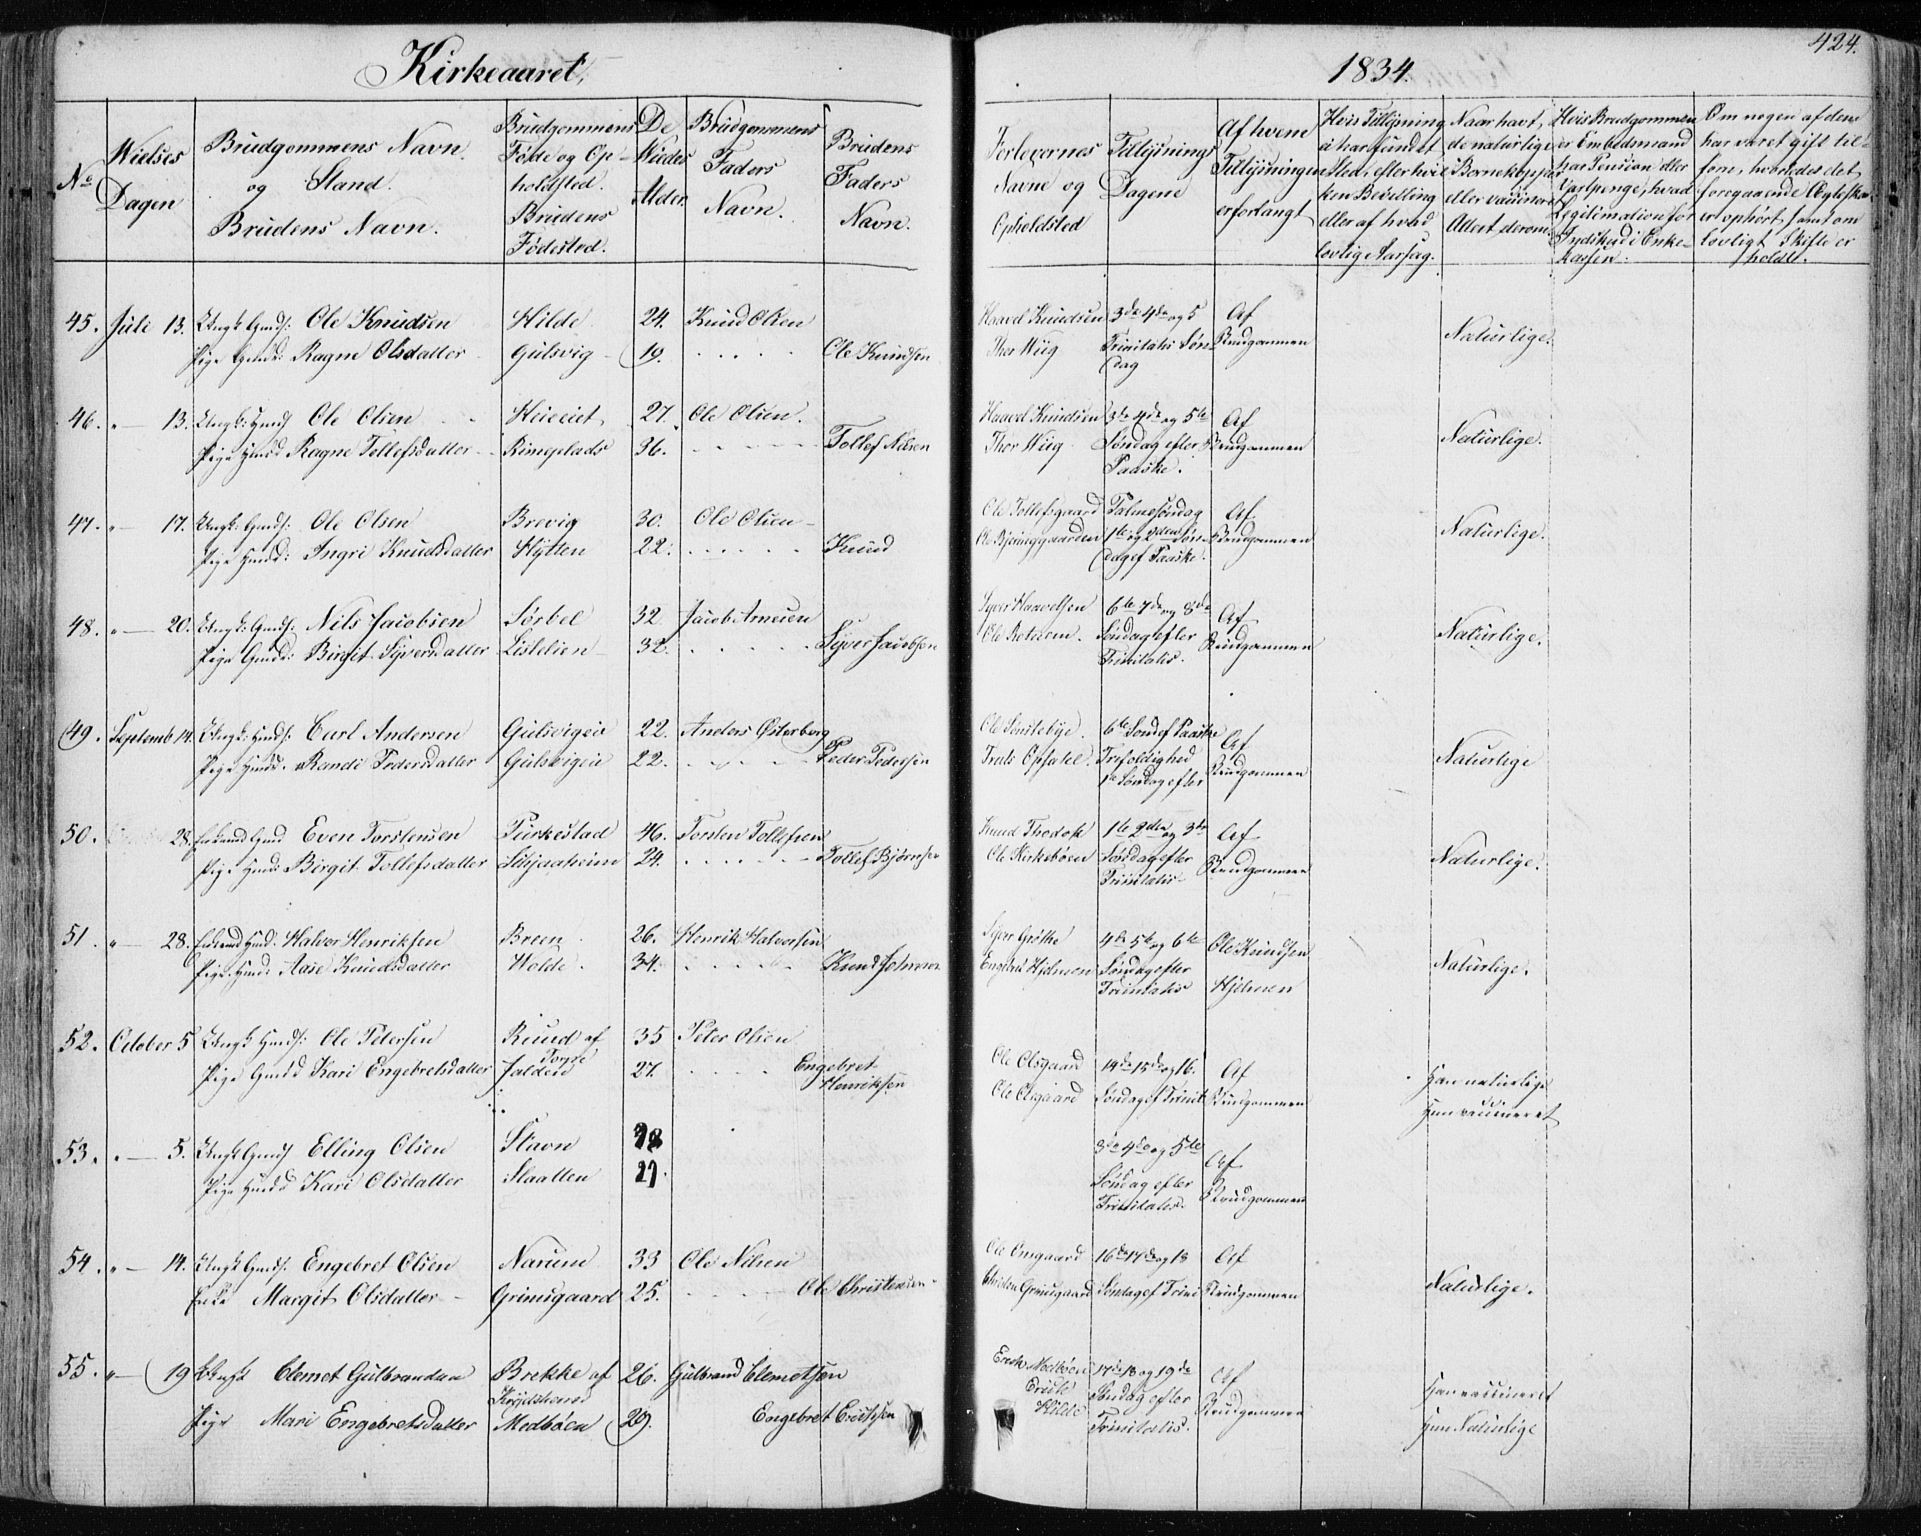 Kirkeaaret,
1834.
424.
No
Wielses Dagen
Brudgommens Navn og Stand.
Brudens Navn.
Brudgommens Føde og Opholdsted.
Brudens Fødested.
De Wiedes Alder
Brudgommens Faders Navn.
Brudens Faders Navn.
Forlovernes Navne og Opholdsted
Tillysnings Dagene
Af hvem Tillysningen erforlangt
Hvis Tillysning ei har fundet Sted, efter hvilken Bevilling eller af hvad lovlig Aarsag.
Naar havt de naturlige Børnekopper eller vaccineret Attest derom
Hvis Brudgommen er Embedsmand har Pension eller Vartpenge, hvad Legitimation for Indskud i Enkekassen.
Om nogen af dem har været gift tilforn, hvorledes det foregaaende Ægteskab er ophørt samt om lovligt Skifte er holdt.
45. Juli 13. Ungk Gmds: Ole Knudsen Hilde 24. Knud Olsen
Pige Gmds: Ragne Olsdatter Gulsvig 19. Ole Knudsen
Haavel Knudsen Thor Wiig
3de 4de og 5 Trinitatis Søndag
Af Brudgommen
Naturlige.
46. " 13. Ungk: Huusm Ole Olsen 27 Ole Olsen.
Pige Huusm Ragne Tollefsdatter Rimeplads 36. Tollef Nilsen
Haavel Knudsen Thor Wiig
3de 4de og 5te Søndag efter Paaske.
Af Brudgommen
Naturlige.
47. " 17. Ungk: Gmds: Ole Olsen Brevig 30. Ole Olsen
Pige Huusm: Ingri Knudsdatter Hytten 22. Knud
Ole Tollefsgaard Ole Bjøringgaarden
Palmesøndag 1te og 2den Søndag ef Paaske.
Af Brudgommen
Naturlige.
48. " 20. Ungk: Gmds: Nils Jacobsen Sørbel 32 Jacob Arnesen
Pige Gmds: Birgit Syversdatter Listelien 32. Syver Jacobsen
Syver Haavelsen
6te 7de og 8de Søndag efter Trinitatis.
Af Brudgommen
Naturlige.
49. Septemb 14. Ungk: Huusm: Carl Andersen Gulsvigeie 22. Anders Østerberg
Pige Huusm. Randi Pedersdatter Gulsvigeie 22. Peder Pedersen
Ole Sonstebye. Truls Opsatel.
6te Sønd ef Paaske Trefoldighed 1te Søndag efter
Af Brudgommen
Naturlige
50. 28. Enkemd Gmd Even Torstensen Turkestad 46. Torsten Tollefsen
Pige Huusm Birgit Tollefsdatter Skjaaheim 24. Tollef Bjørnsen
Knud Thodok Ole Kirkebøen
1te 2den og 3de Søndag efter Trinitatis
Af Brudgommen
Naturlige.
51. " 28. Enkemd Huusm: Halvor Henriksen Breen 26. Henrik Halvorsen
Pige Huusm Aase Knudsdatter Wolde. 34. Knud
Syver Engebret Hjelmen
4de 5te og 6te Søndag efter Trinitatis
Ole Knudsen Hjelmen
Naturlige.
52. October 5 Ungk Huusm: Ole Petersen Ruud af Torpe 35 Peter Olsen
Pige Gmds Kari Engebretsdatter 27. Engebret Henriksen
Ole Olsgaard Ole Olsgaard
14de 15de og 16. Søndag ef Trinit
Af Brudgommen
Han naturlige
Hun vaccineret
53. " 5. Ungk Gmds Elling Olsen Stavn 28
Pige Huusm Kari Olsdatter Slaatten
3de 4de og 5te Søndag efter Trinitatis.
Af Brudgommen
54. " 14. Ungk Gmds: Engebret Olsen Narum 33 Ole Nilsen
Enke Margit Olsdatter Grimsgaard 25. Ole Christensen
Ole Omgaard Christen Grimsgaard
16de 17de og 18 Søndag ef Trini
Af Brudgommen
Naturlige.
55. " 19 Ungk Clemet Gulbrandsen Brekke af Krydsherred 26. Gulbrand Clemetsen
Pige Mari Engebretsdatter Medbøen 29. Engebret Erichsen
Erich Medbøen Erich Hilde
17de 18 og 19de Søndag efter Trinitatis.
Af Brudgommen
Han vaccineret
Hun Naturlige